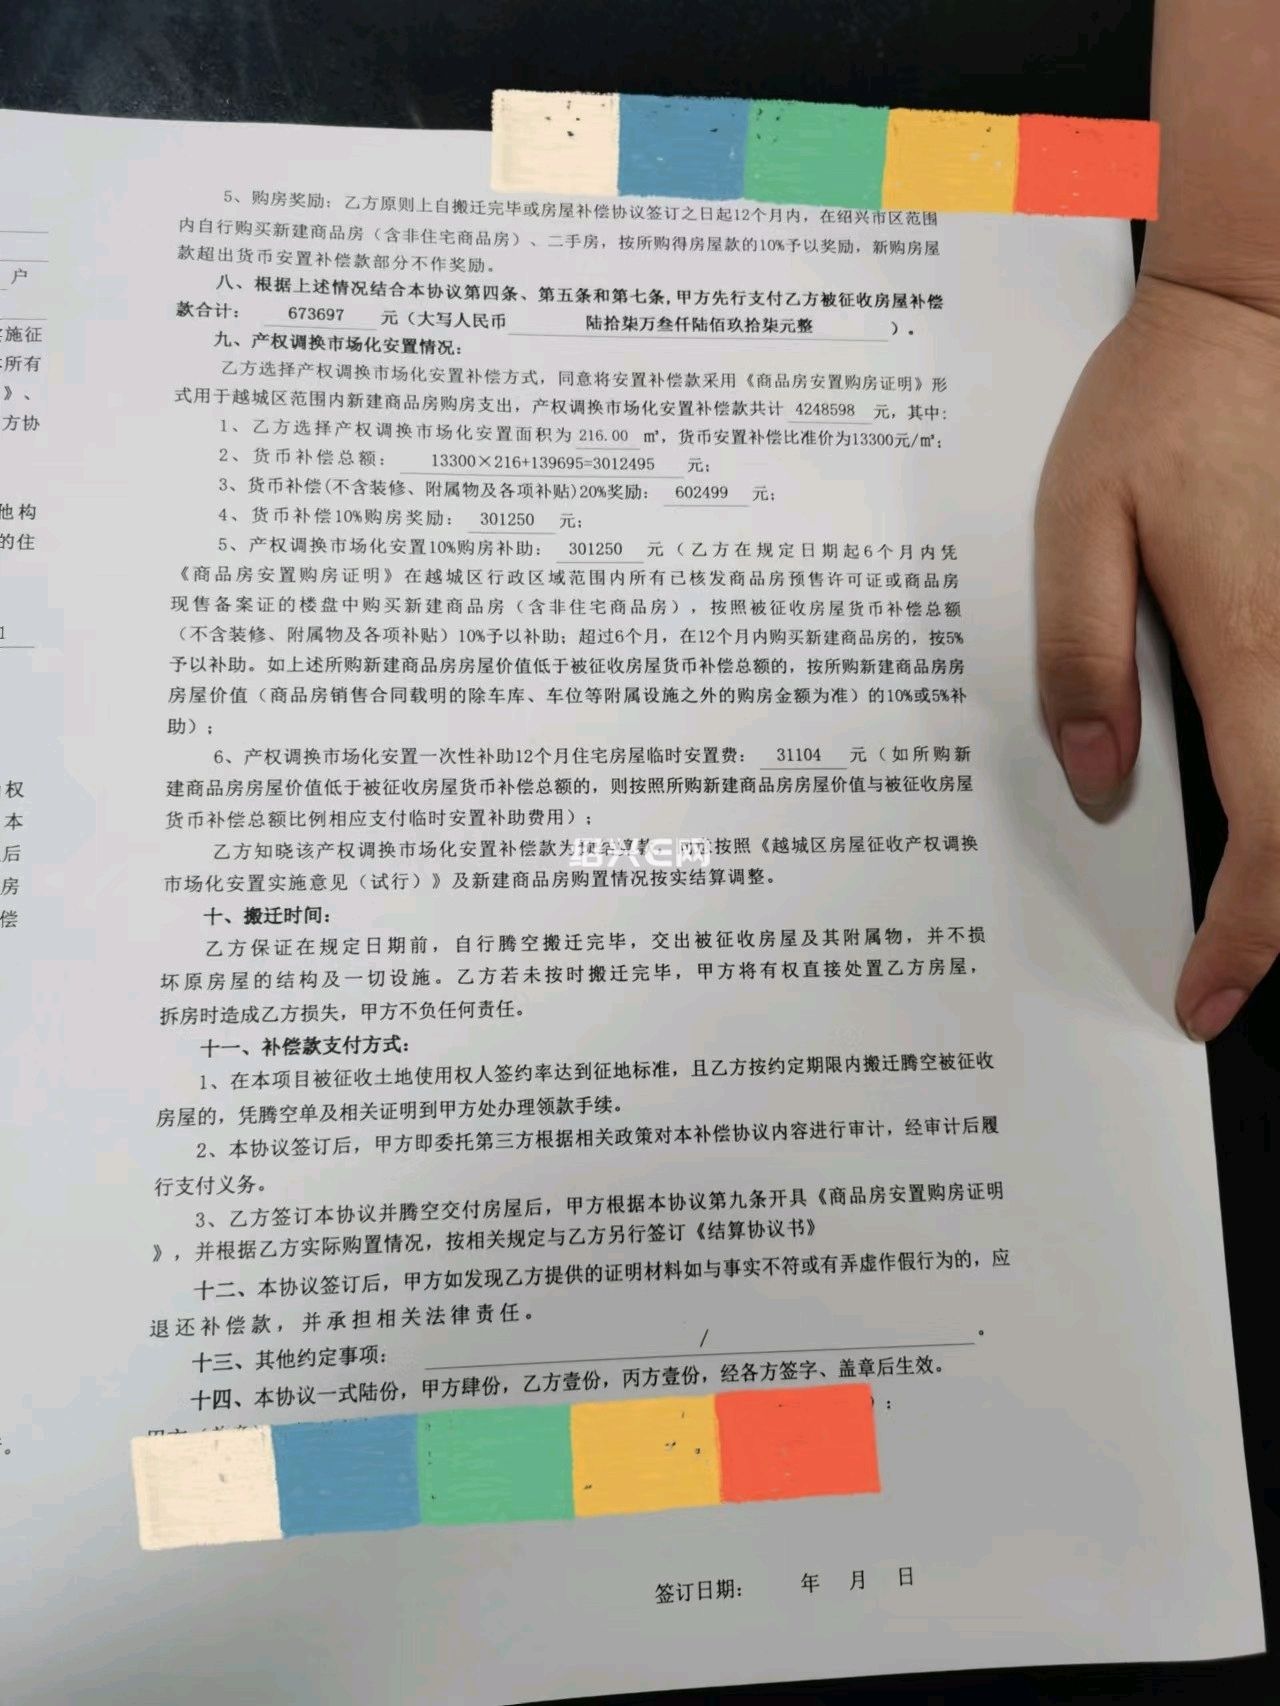 户
施征
所有
》、
方协
他构
的住
1
权
本
后
房
偿
5、购房奖励：乙方原则上自搬迁完毕或房屋补偿协议签订之日起12个月内，在绍兴市区范围
内自行购买新建商品房（含非住宅商品房）、二手房，按所购得房屋款的10%予以奖励，新购房屋
款超出货币安置补偿款部分不作奖励。
八、根据上述情况结合本协议第四条、第五条和第七条,甲方先行支付乙方被征收房屋补偿
款合计： 673697 元（大写人民币 陆拾柒万叁仟陆佰玖拾柒元整 ）。
九、产权调换市场化安置情况：
乙方选择产权调换市场化安置补偿方式，同意将安置补偿款采用《商品房安置购房证明》形
式用于越城区范围内新建商品房购房支出，产权调换市场化安置补偿款共计 4248598 元，其中：
1、乙方选择产权调换市场化安置面积为 216.00 ㎡，货币安置补偿比准价为13300元/㎡；
2、货币补偿总额： 13300×216+139695=3012495 元；
3、货币补偿(不含装修、附属物及各项补贴)20%奖励： 602499 元；
4、货币补偿10%购房奖励： 301250 元；
5、产权调换市场化安置10%购房补助： 301250 元（乙方在规定日期起6个月内凭
《商品房安置购房证明》在越城区行政区域范围内所有已核发商品房预售许可证或商品房
现售备案证的楼盘中购买新建商品房（含非住宅商品房），按照被征收房屋货币补偿总额
（不含装修、附属物及各项补贴）10%予以补助；超过6个月，在12个月内购买新建商品房的，按5%
予以补助。如上述所购新建商品房房屋价值低于被征收房屋货币补偿总额的，按所购新建商品房房
房屋价值（商品房销售合同载明的除车库、车位等附属设施之外的购房金额为准）的10%或5%补
助）；
6、产权调换市场化安置一次性补助12个月住宅房屋临时安置费： 31104 元（如所购新
建商品房房屋价值低于被征收房屋货币补偿总额的，则按照所购新建商品房房屋价值与被征收房屋
货币补偿总额比例相应支付临时安置补助费用）；
乙方知晓该产权调换市场化安置补偿款为预结算款，同意按照《越城区房屋征收产权调换
市场化安置实施意见（试行）》及新建商品房购置情况按实结算调整。
绍兴E网
十、搬迁时间：
乙方保证在规定日期前，自行腾空搬迁完毕，交出被征收房屋及其附属物，并不损
坏原房屋的结构及一切设施。乙方若未按时搬迁完毕，甲方将有权直接处置乙方房屋，
拆房时造成乙方损失，甲方不负任何责任。
十一、补偿款支付方式：
1、在本项目被征收土地使用权人签约率达到征地标准，且乙方按约定期限内搬迁腾空被征收
房屋的，凭腾空单及相关证明到甲方处办理领款手续。
2、本协议签订后，甲方即委托第三方根据相关政策对本补偿协议内容进行审计，经审计后履
行支付义务。
3、乙方签订本协议并腾空交付房屋后，甲方根据本协议第九条开具《商品房安置购房证明
》，并根据乙方实际购置情况，按相关规定与乙方另行签订《结算协议书》
十二、本协议签订后，甲方如发现乙方提供的证明材料如与事实不符或有弄虚作假行为的，应
退还补偿款，并承担相关法律责任。
十三、其他约定事项： / 。
十四、本协议一式陆份，甲方肆份，乙方壹份，丙方壹份，经各方签字、盖章后生效。
）：
签订日期： 年 月 日